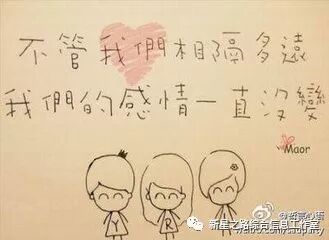 不管我們相隔多遠
我們的感情一直沒變
Maor
Y R
新星之路综合信息工作室